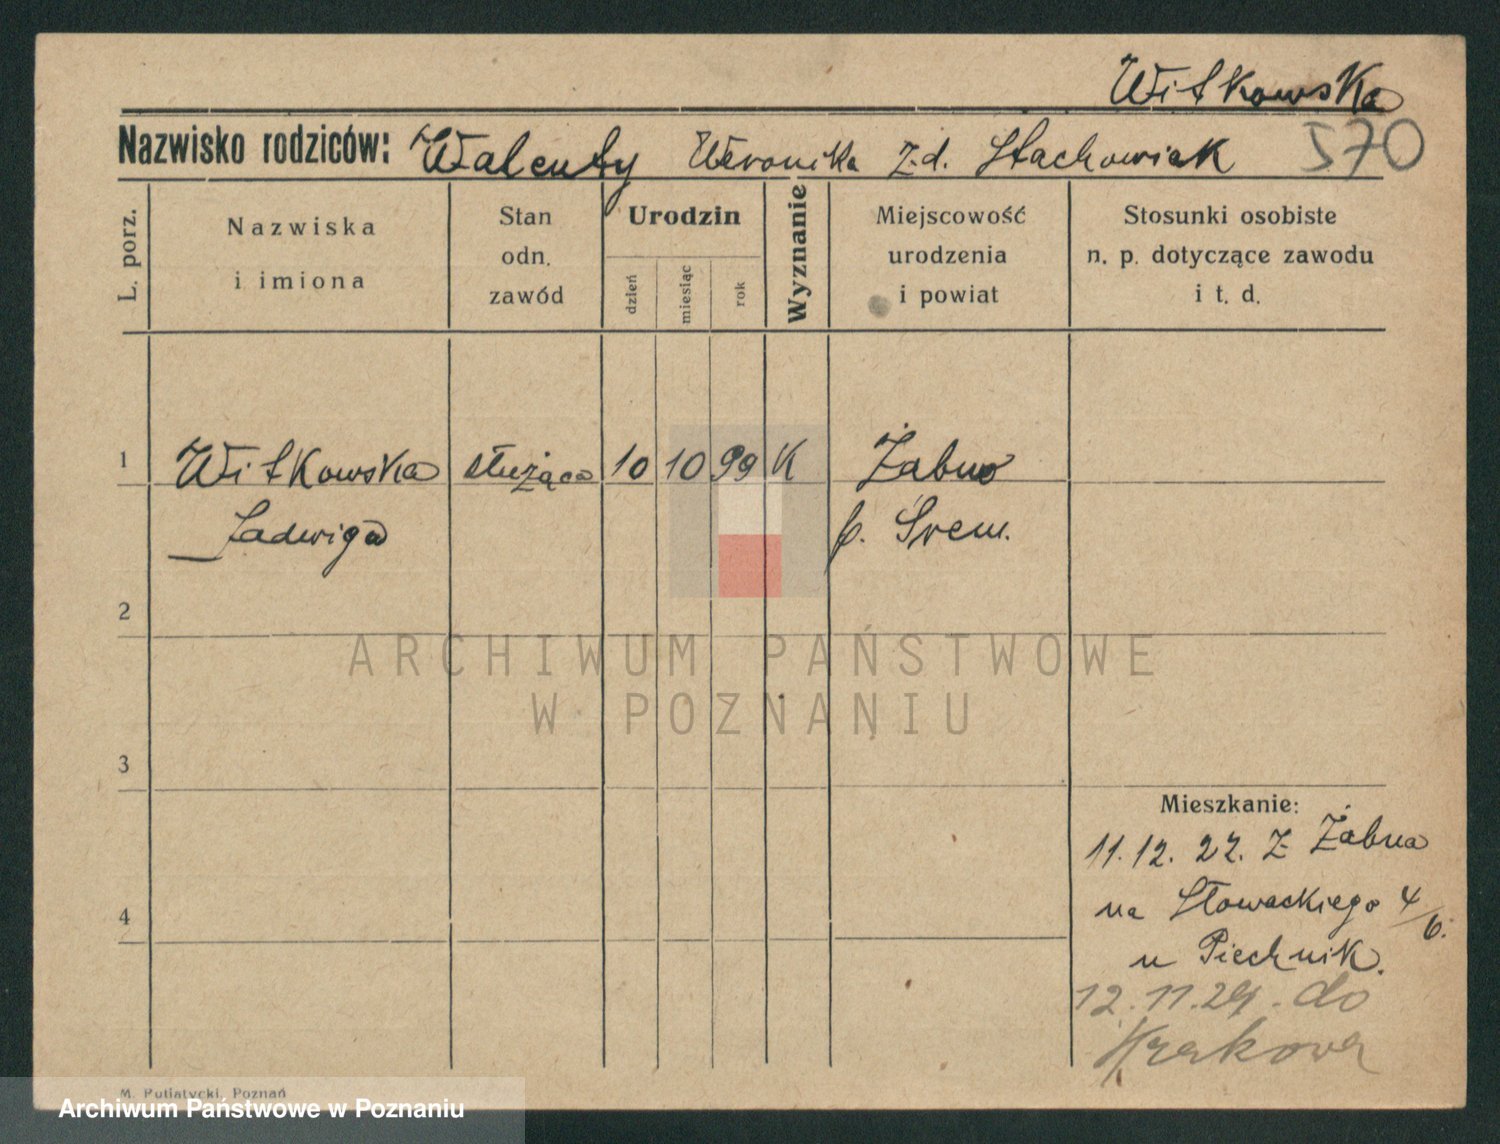 Witkowska
Nazwisko rodziców: Walenty Weronika z d. Stachowiak 570
L. porz.
Nazwiska
i imiona
Stan
odn.
zawód
Urodzin
dzień
miesiąc
rok
Wyznanie
Miejscowość
urodzenia
i powiat
Stosunki osobiste
n. p. dotyczące zawodu
i t. d.
1 Witkowska służąca 10 10 99 K Żabno
Jadwiga p. Śrem.
2
ARCHIWUM PAŃSTWOWE
W POZNANIU
3
Mieszkanie:
11.12.22. z Żabna
na Słowackiego 4/6.
4
u Piechnik.
12.11.24. do
Krakowa
M. Putiatycki, Poznań
Archiwum Państwowe w Poznaniu